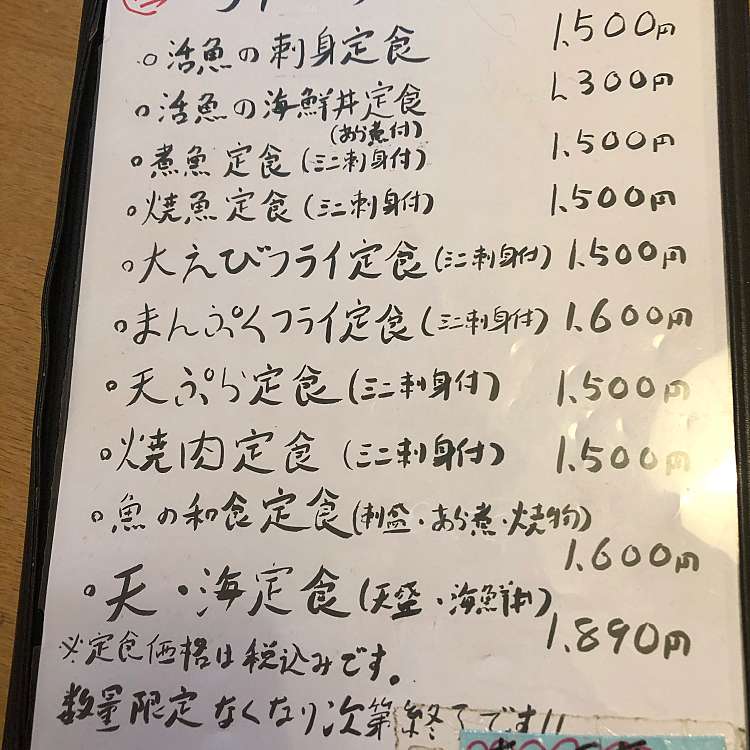 ○活魚の刺身定食 1,500円
○活魚の海鮮丼定食 1,300円
(あら煮付)
○煮魚定食(ミニ刺身付) 1,500円
○焼魚定食(ミニ刺身付) 1,500円
○大えびフライ定食(ミニ刺身付) 1,500円
○まんぷくフライ定食(ミニ刺身付) 1,600円
○天ぷら定食(ミニ刺身付) 1,500円
○焼肉定食(ミニ刺身付) 1,500円
○魚の和食定食(刺盛・あら煮・焼物)
1,600円
○天・海定食(天盛・海鮮丼)
1,890円
※定食価格は税込みです。
数量限定なくなり次第終了です!!